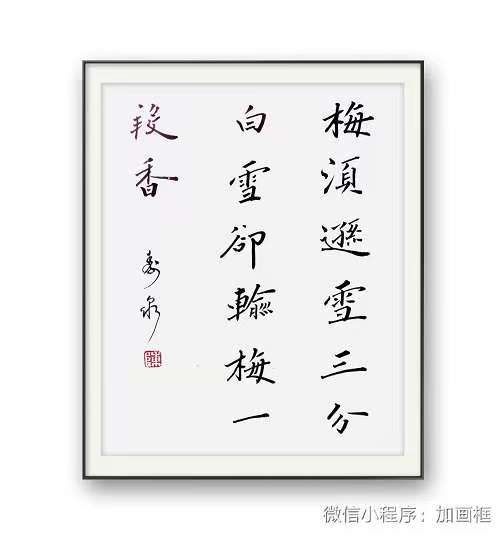 梅湏遜雪三分
白雪卻輸梅一
段香
微信小程序：加画框